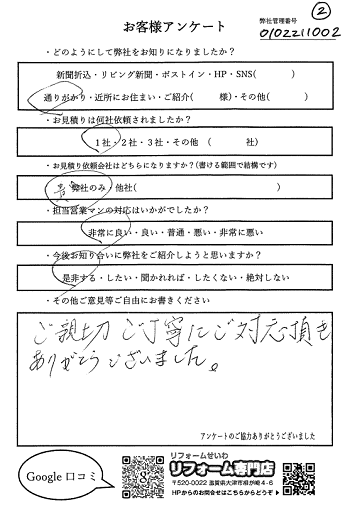 お客様アンケート
弊社管理番号
②
0102211002
・どのようにして弊社をお知りになりましたか？
新聞折込・リビング新聞・ポストイン・HP・SNS(　　　)
通りがかり・近所にお住まい・ご紹介(　　　様)・その他(　　　)
・お見積りは何社依頼されましたか？
1社・2社・3社・その他　(　　　社)
・お見積り依頼会社はどちらになりますか？(書ける範囲で結構です)
弊社のみ・他社(　　　)
・担当営業マンの対応はいかがでしたか？
非常に良い・良い・普通・悪い・非常に悪い
・今後お知り合いに弊社をご紹介しようと思いますか？
是非する・したい・聞かれれば・したくない・絶対しない
・その他ご意見等ご自由にお書きください
ご親切 ご丁寧にご対応頂き
ありがとうございました。
アンケートのご協力ありがとうございました
Google 口コミ
リフォームせいわ
リフォーム専門店
〒520-0022 滋賀県大津市柳が崎4-6
HPからのお問合せはこちらからどうぞ